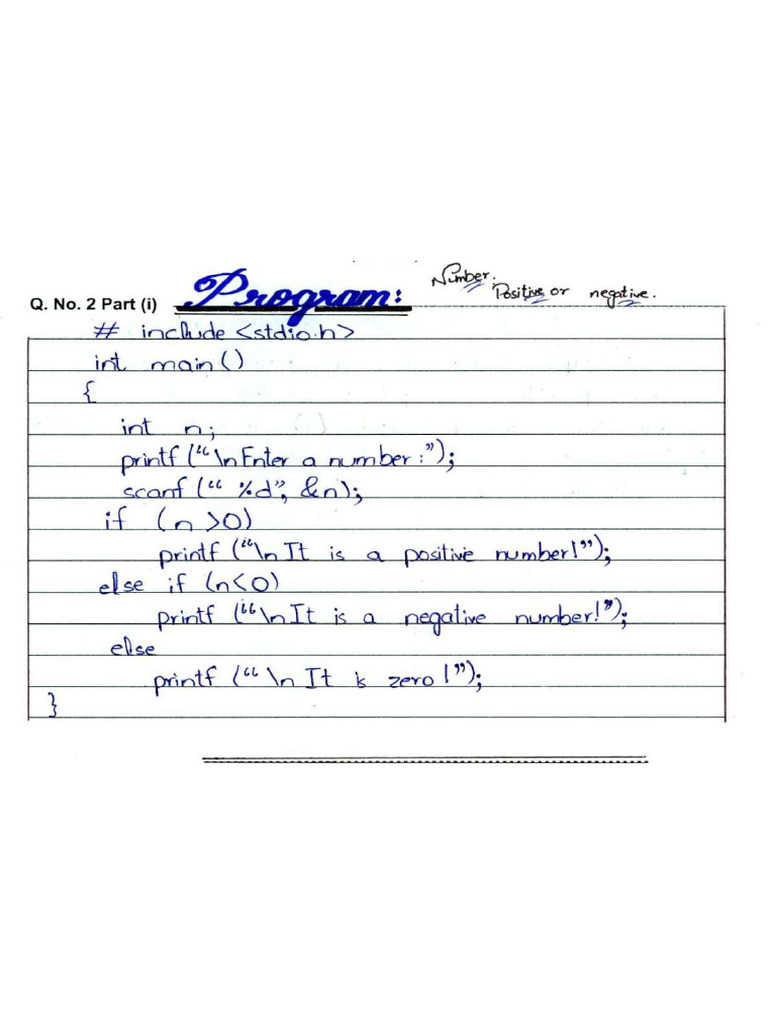 Number.
Positive or negative.
Q. No. 2 Part (i) Program:
# include <stdio.h>
int main()
{
int n;
printf (“\nEnter a number:”);
scanf (“ %d”, &n);
if (n >0)
printf (“\n It is a positive number!”);
else if (n<0)
printf (“\n It is a negative number!”);
else
printf (“ \n It is zero!”);
}